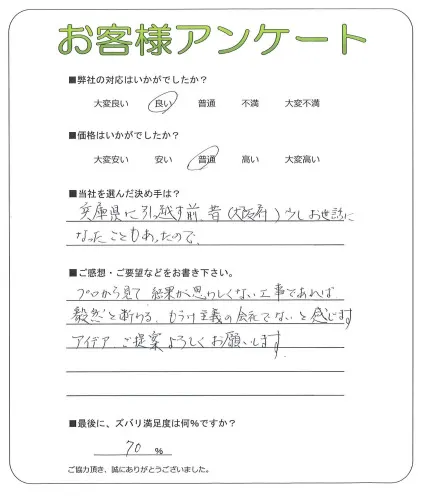 お客様アンケート
■弊社の対応はいかがでしたか？
大変良い 良い 普通 不満 大変不満
■価格はいかがでしたか？
大変安い 安い 普通 高い 大変高い
■当社を選んだ決め手は？
兵庫県に引っ越す前、昔(大阪府)少しお世話に
なったこともあったので、
■ご感想・ご要望などをお書き下さい。
プロから見て 結果が思わしくない工事であれば
毅然と断わる、もうけ主義の会社でないと感じます
アイデア、ご提案よろしくお願いします。
■最後に、ズバリ満足度は何%ですか？
70 %
ご協力頂き、誠にありがとうございました。